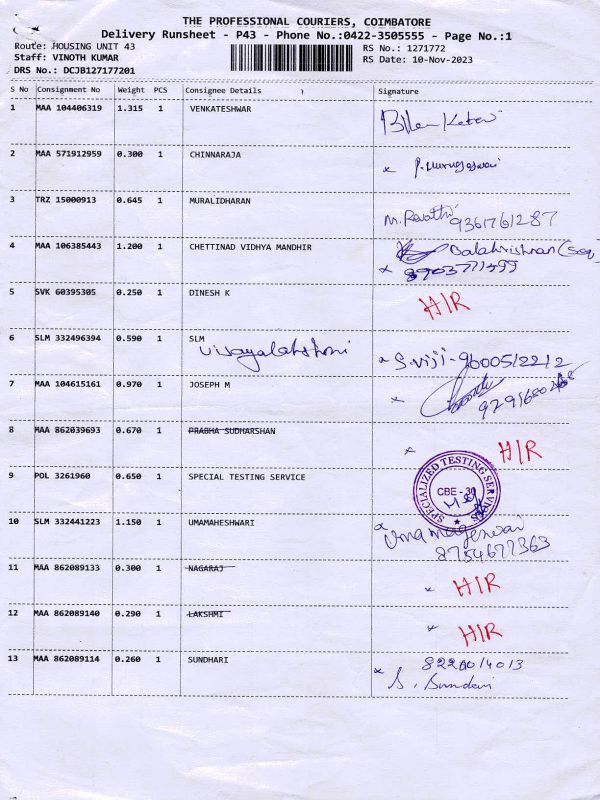 THE PROFESSIONAL COURIERS, COIMBATORE
Delivery Runsheet - P43 - Phone No.:0422-3505555 - Page No.:1
Route: HOUSING UNIT 43
RS No.: 1271772
Staff: VINOTH KUMAR
RS Date: 10-Nov-2023
DRS No.: DCJB127177201
S No Consignment No Weight PCS Consignee Details Signature
1 MAA 104406319 1.315 1 VENKATESHWAR
2 MAA 571912959 0.300 1 CHINNARAJA
x P. Murugeswari
3 TRZ 15000913 0.645 1 MURALIDHARAN
M. Revathi 9361761287
4 MAA 106385443 1.200 1 CHETTINAD VIDHYA MANDHIR
Balakrishnan (Seq)
x 8903771399
5 SVK 60395305 0.250 1 DINESH K
H/R
6 SLM 332496394 0.590 1 SLM
Vijayalakshmi
S. Viji - 9600512212
7 MAA 104615161 0.970 1 JOSEPH M
x
8 MAA 862039693 0.670 1 PRABHA SUDHARSHAN
x H/R
9 POL 3261960 0.650 1 SPECIAL TESTING SERVICE
SPECIALIZED TESTING SERVICES
CBE - 30
10 SLM 332441223 1.150 1 UMAMAHESHWARI
x Uma mageswari
8754677363
11 MAA 862089133 0.300 1 NAGARAJ
x H/R
12 MAA 862089140 0.290 1 LAKSHMI
x H/R
13 MAA 862089114 0.260 1 SUNDHARI
x S. Sundari